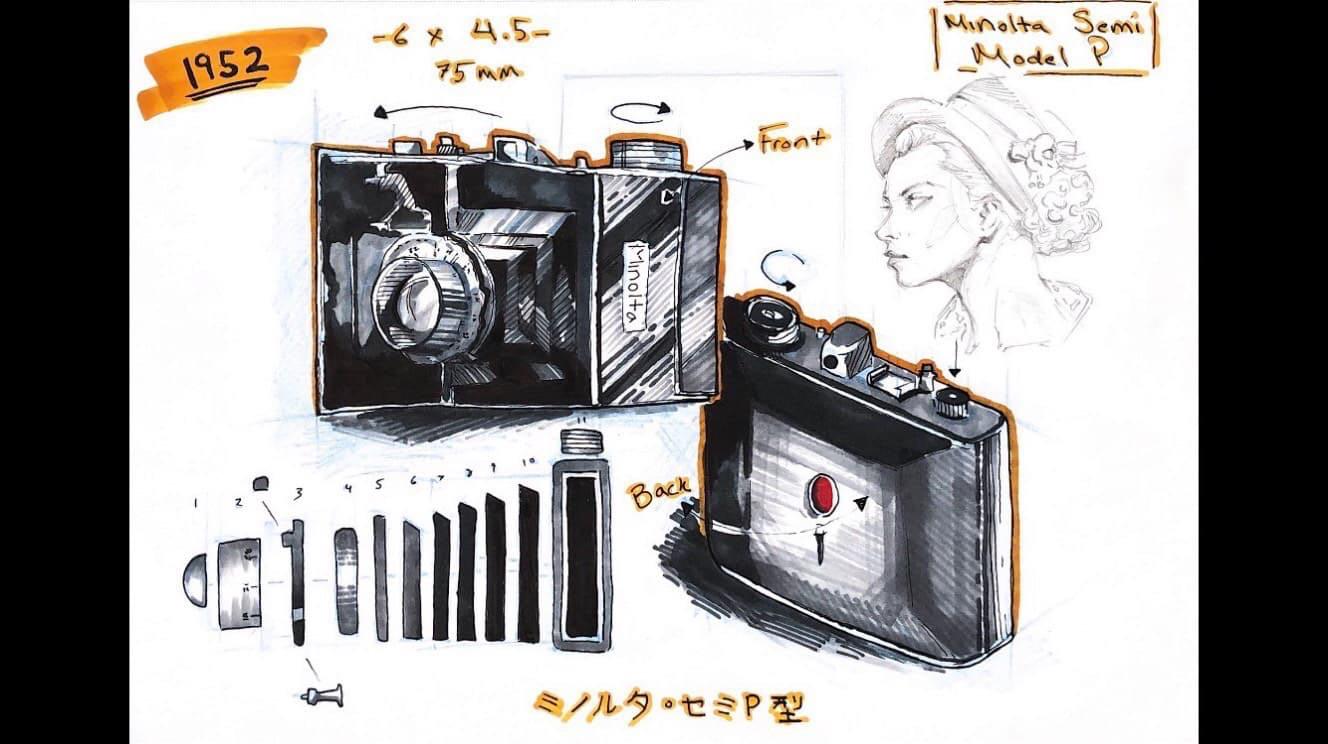 1952
-6 x 4.5-
75mm
Minolta Semi
Model P
Front
Minolta
Back
1 2 3 4 5 6 7 8 9 10
ミノルタ・セミP型